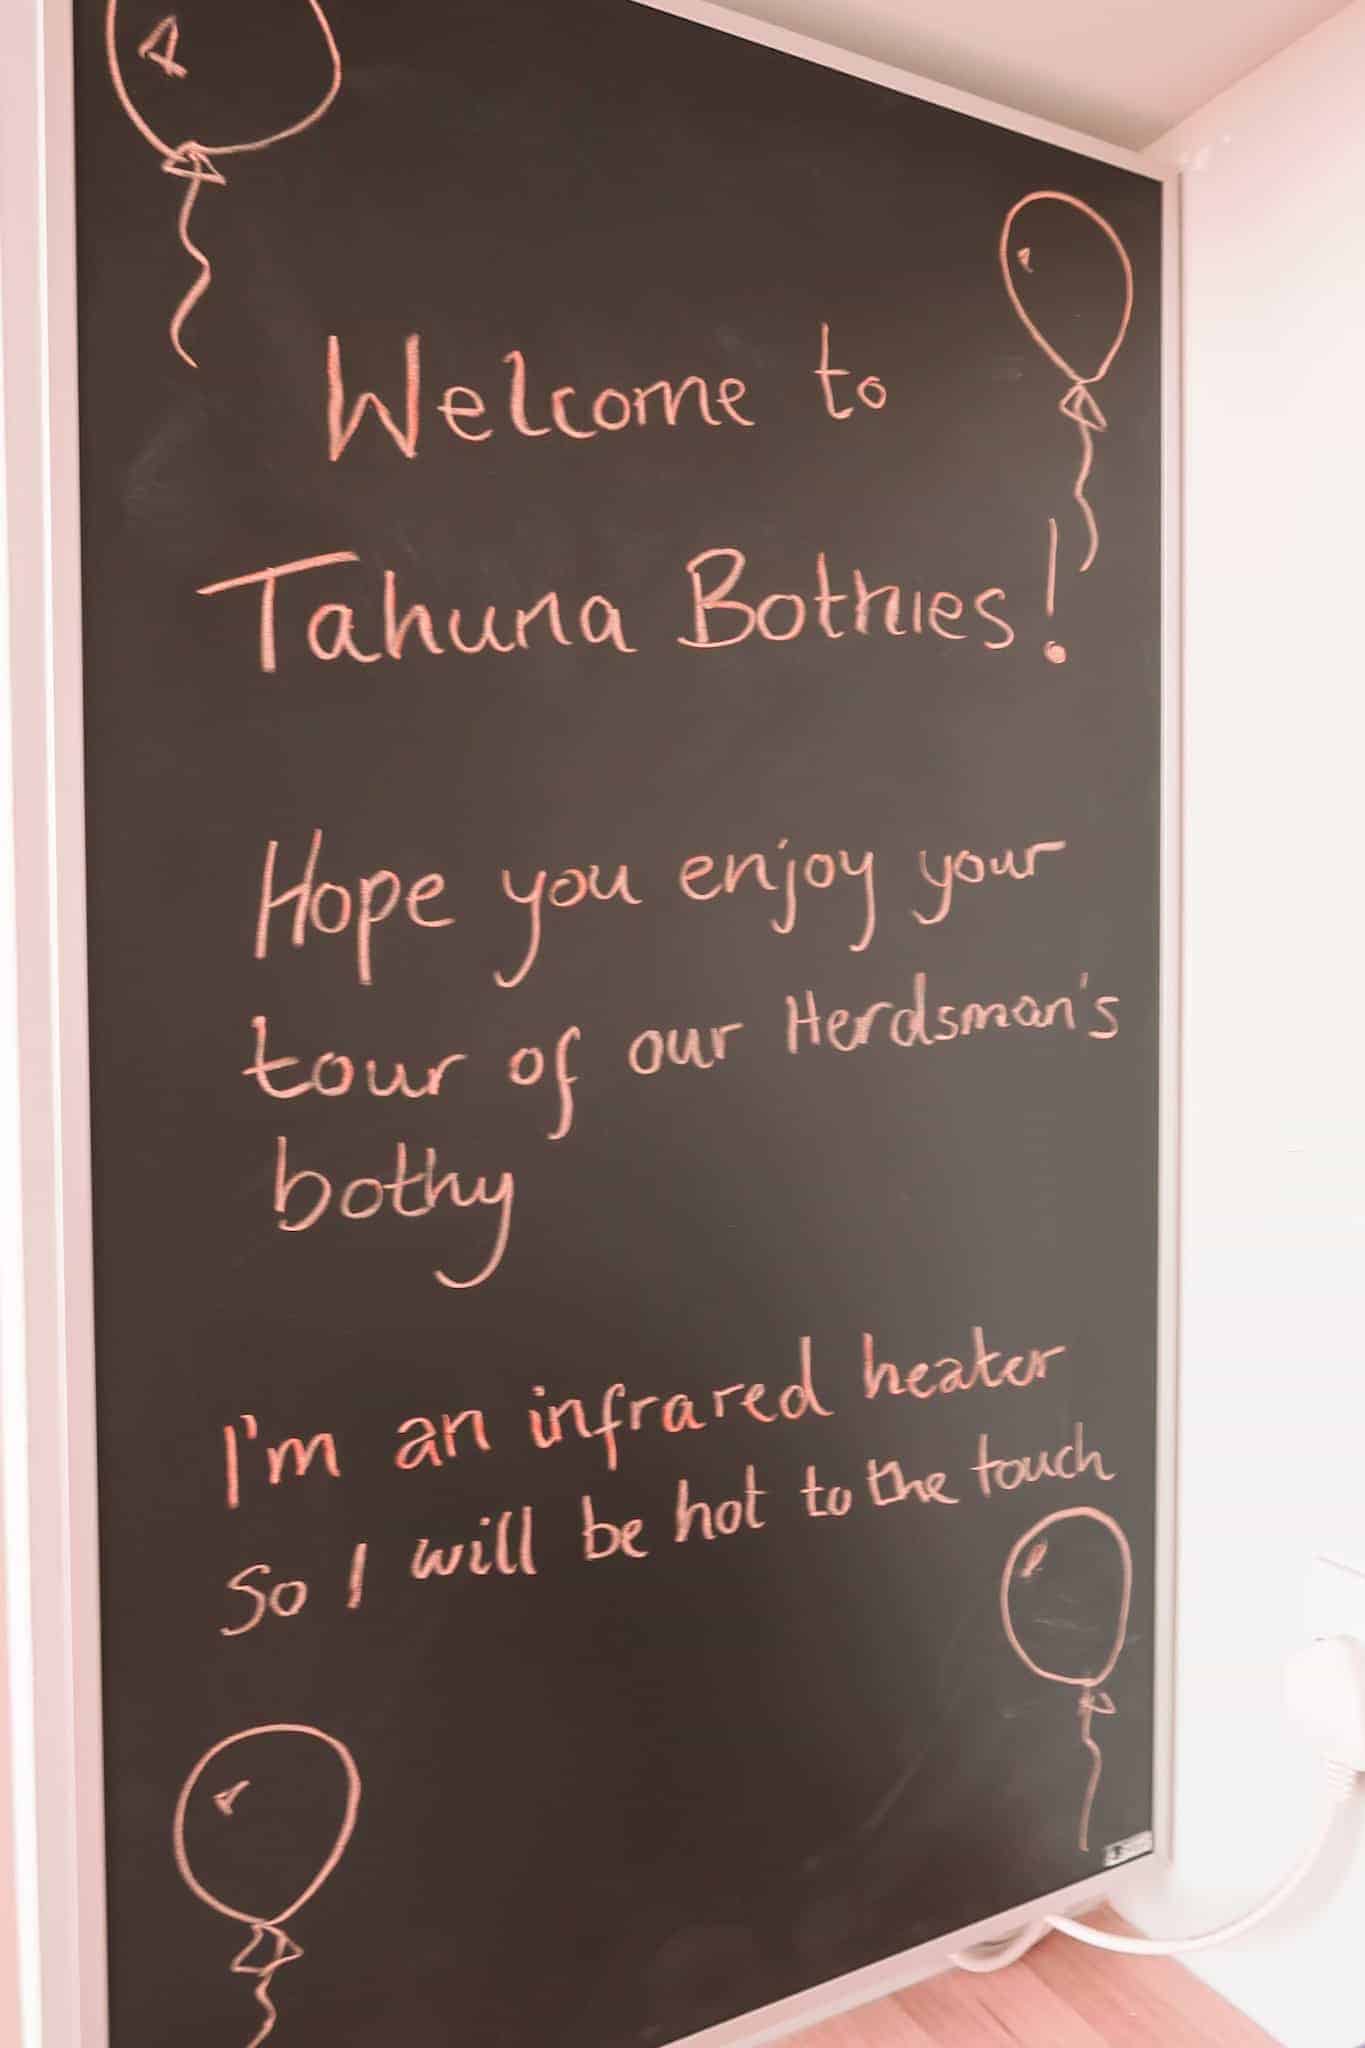 Welcome to
Tahuna Bothies!
Hope you enjoy your
tour of our Herdsman's
bothy
I'm an infrared heater
so I will be hot to the touch